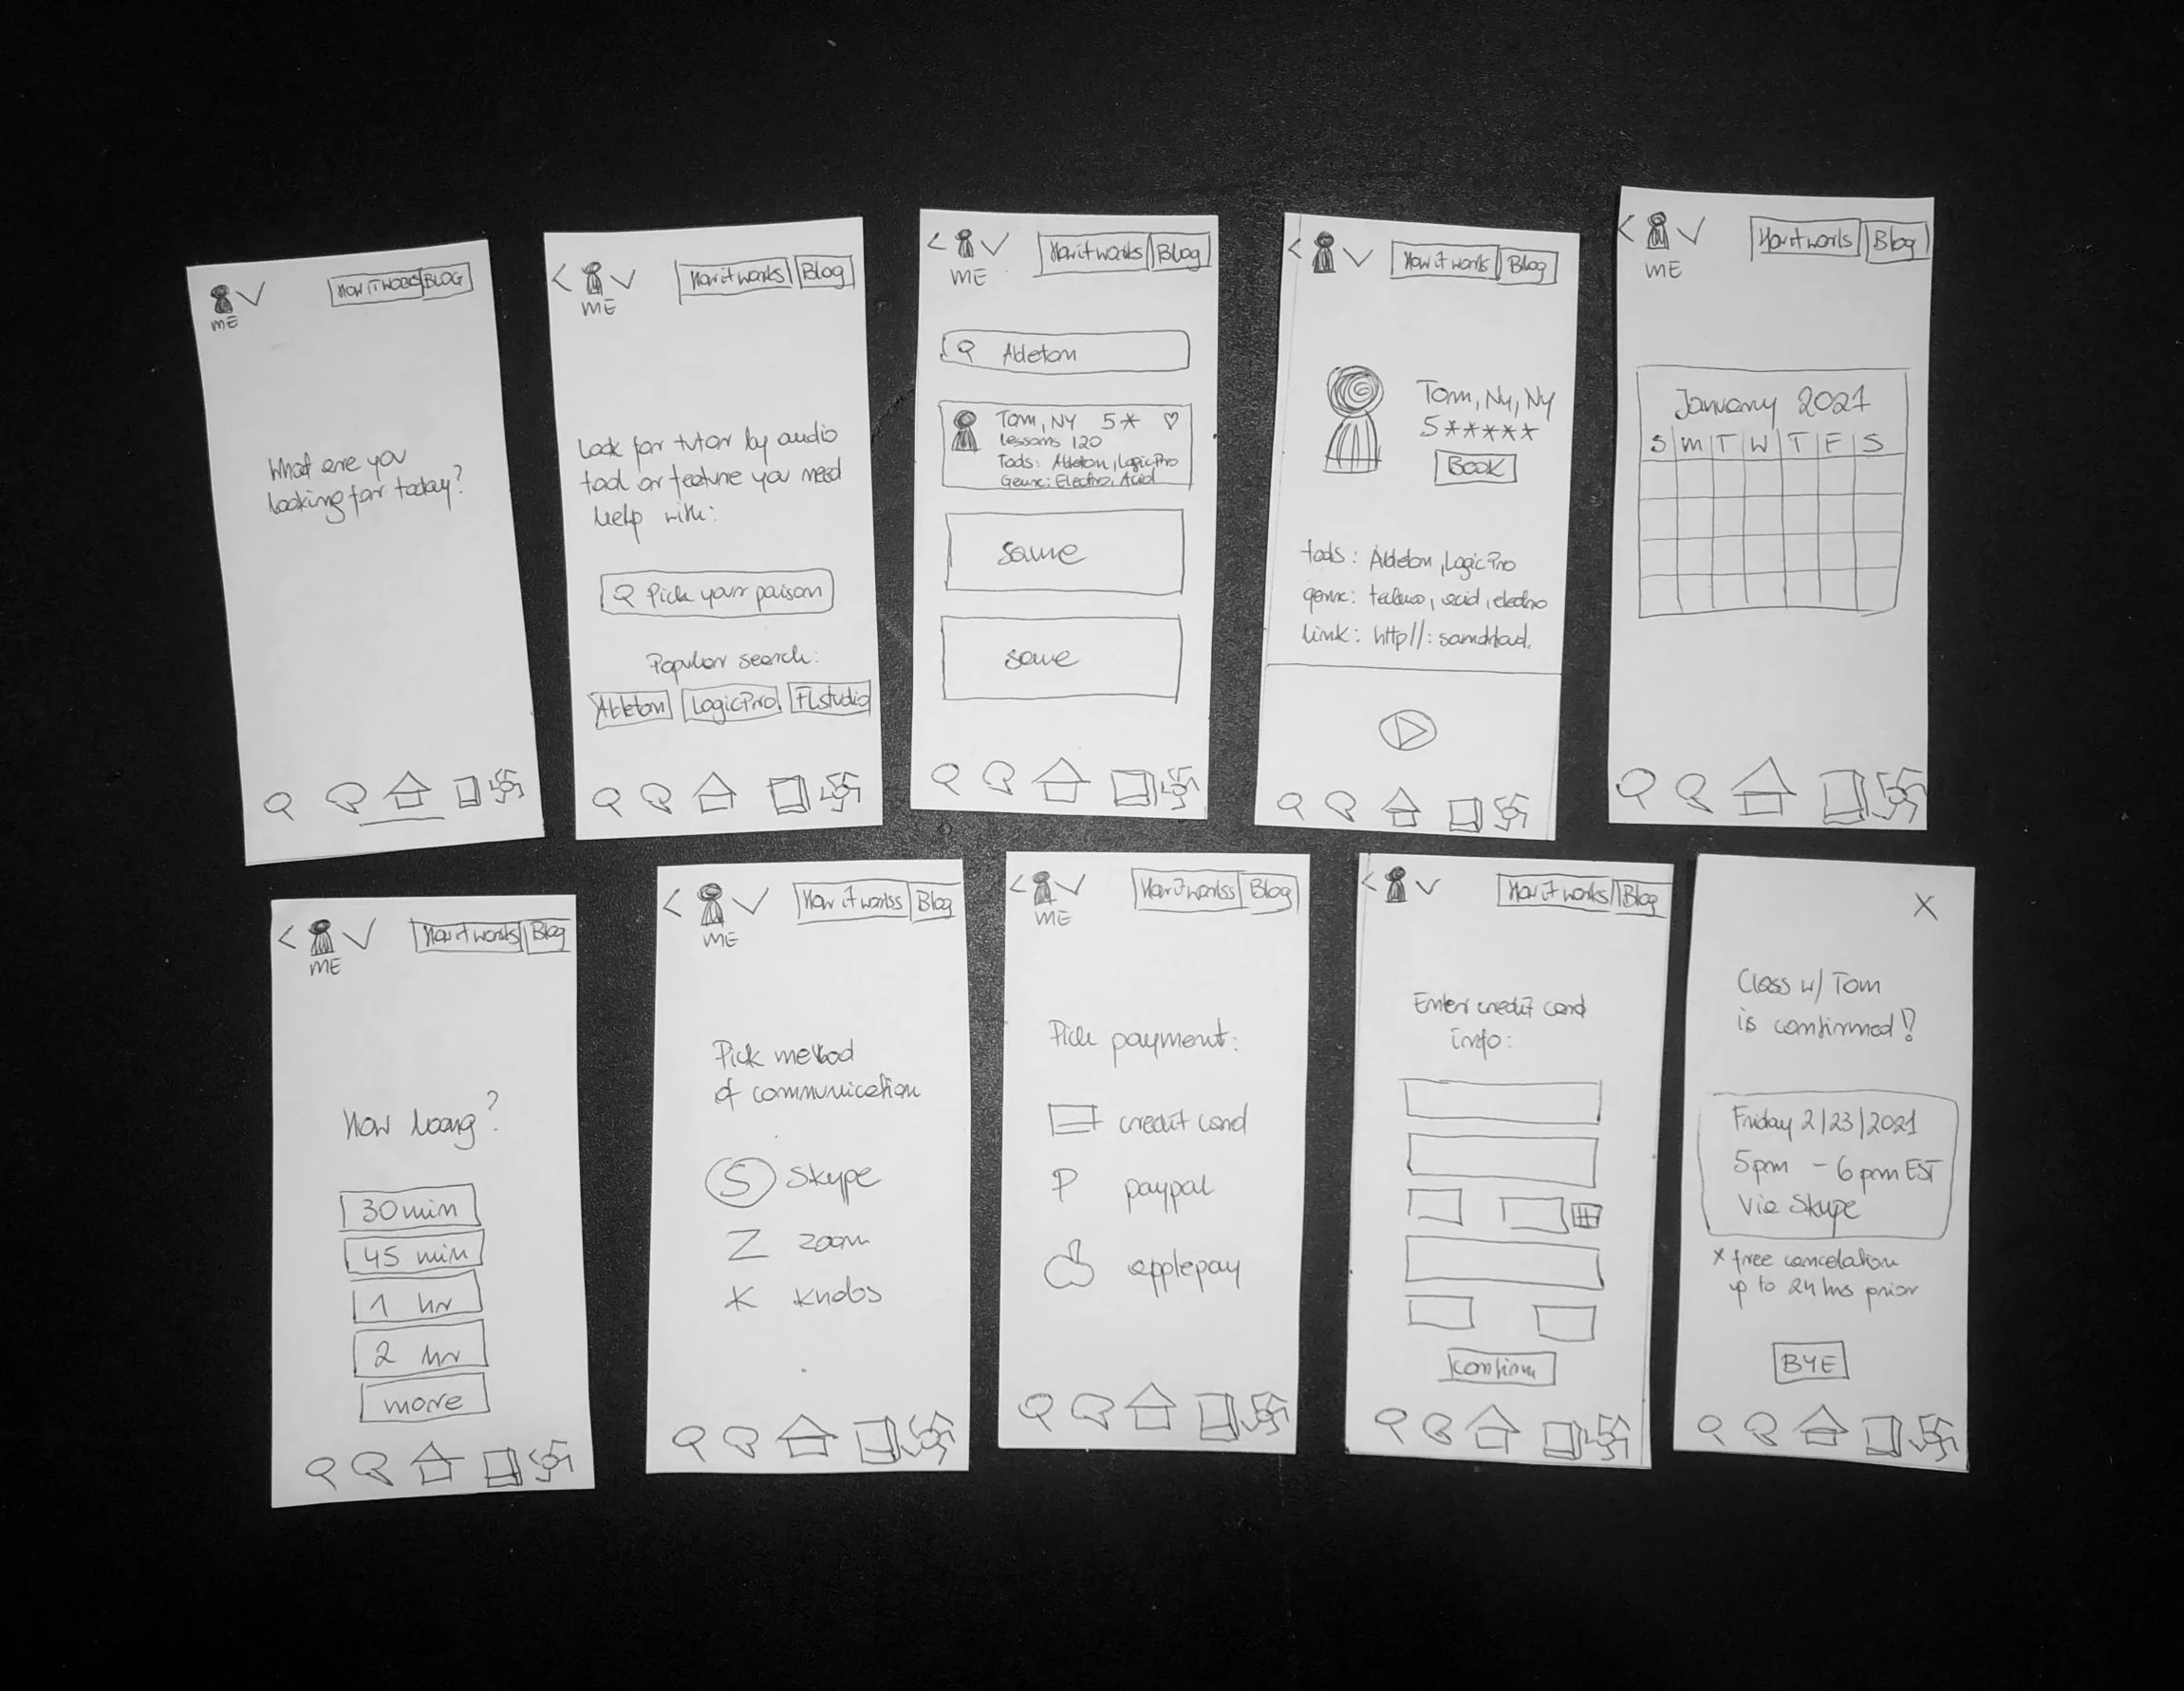 ME
HOW IT WORKS BLOG
What are you
looking for today?
ME
How it works Blog
Look for tutor by audio
tool or feature you need
help with:
Pick your poison
Popular search:
Ableton LogicPro FLstudio
ME
How it works Blog
Ableton
Tom, NY 5* ♡
lessons 120
Tools: Ableton, LogicPro
Genre: Electro, Acid
same
same
How it works Blog
Tom, Ny, Ny
5*****
BOOK
tools: Ableton, LogicPro
genre: techno, acid, electro
link: http//:
ME
How it works Blog
January 2021
S M T W T F S
ME
How it works Blog
How long?
30min
45 min
1 hr
2 hr
more
ME
How it workss Blog
Pick method
of communication
S Skype
Z zoom
K knobs
ME
How it workss Blog
Pick payment:
credit card
P paypal
applepay
How it works Blog
Enter credit card
info:
Confirm
X
Class w/ Tom
is confirmed!
Friday 2/23/2021
5pm - 6pm EST
Via Skype
x free cancelation
up to 24 hrs prior
BYE